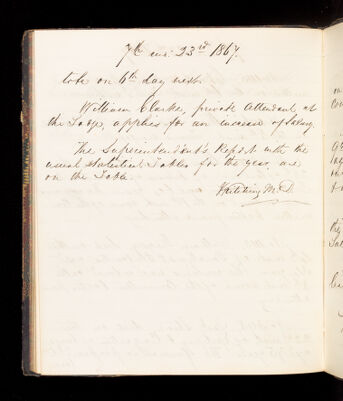 7th mo: 23rd 1867.
to be on 6th day next.
William Clarke, private attendant at
the Lodge, applies for an increase of Salary.
The Superintendent's Report with the
usual statistical Tables for the year are
on the Table.
Kitching M.D.